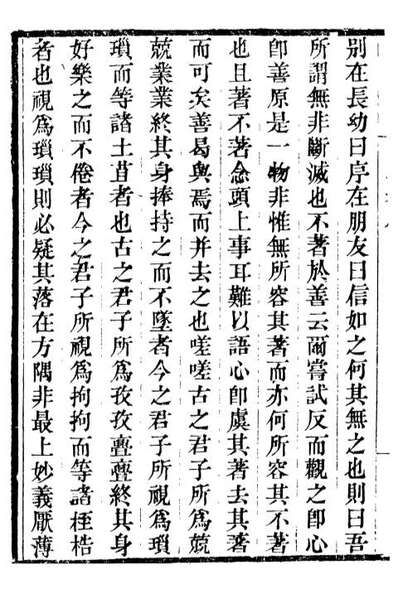 別在長幼曰序在朋友曰信如之何其無之也則曰吾
所謂無非斷滅也不著於善云爾嘗試反而觀之卽心
卽善原是一物非惟無所容其著而亦何所容其不著
也且著不著念頭上事耳難以語心卽虞其著去其著
而可矣善曷與焉而并去之也嗟嗟古之君子所爲兢
兢業業終其身捧持之而不墜者今之君子所視爲瑣
瑣而等諸土苴者也古之君子所爲孜孜亹亹終其身
好樂之而不倦者今之君子所視爲拘拘而等諸桎梏
者也視爲瑣瑣則必疑其落在方隅非最上妙義厭薄